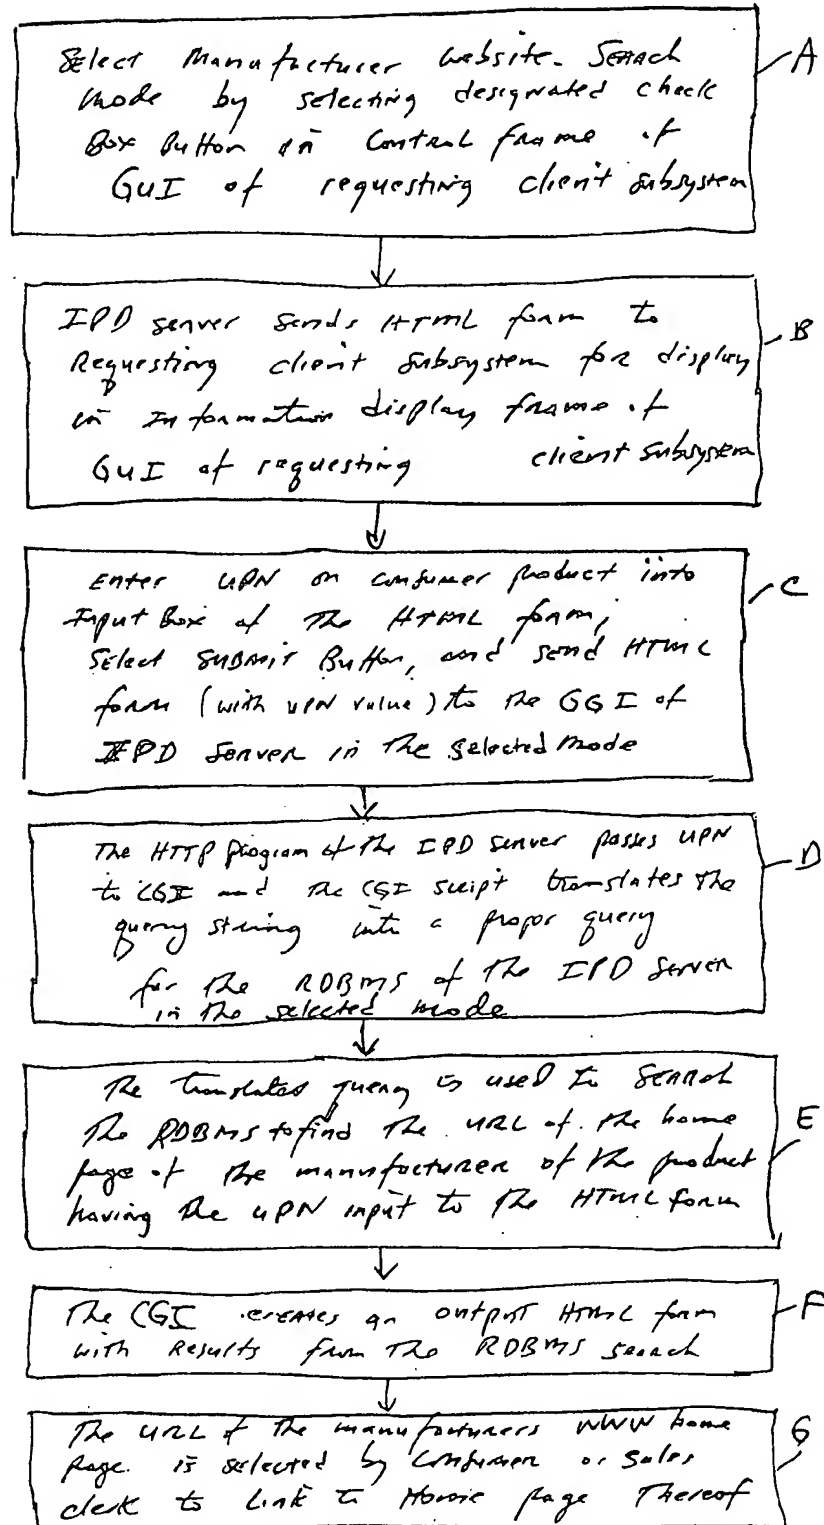 Select Manufacturer Website Search A
Mode by selecting designated check
Box Button in Control frame of
GUI of requesting client subsystem
IPD server sends HTML form to B
Requesting client subsystem for display
in Information display frame of
GUI of requesting client subsystem
Enter UPN on consumer product into C
Input Box of The HTML form,
Select SUBMIT Button, and send HTML
form (with UPN value) to the GGI of
IPD Server in The selected Mode
The HTTP program of the IPD server passes UPN D
to CGI and the CGI script translates the
query string into a propor query
for the RDBMS of the IPD Server
in the selected mode
The translated query is used to SEARCH
The RDBMS to find the URL of the home E
page of the manufacturer of the product
having the UPN input to the HTML form
The CGI creates an output HTML form F
with Results from The RDBMS search
The URL of the manufacturers WWW home G
Page is selected by Consumer or Sales
clerk to Link to Home page Thereof